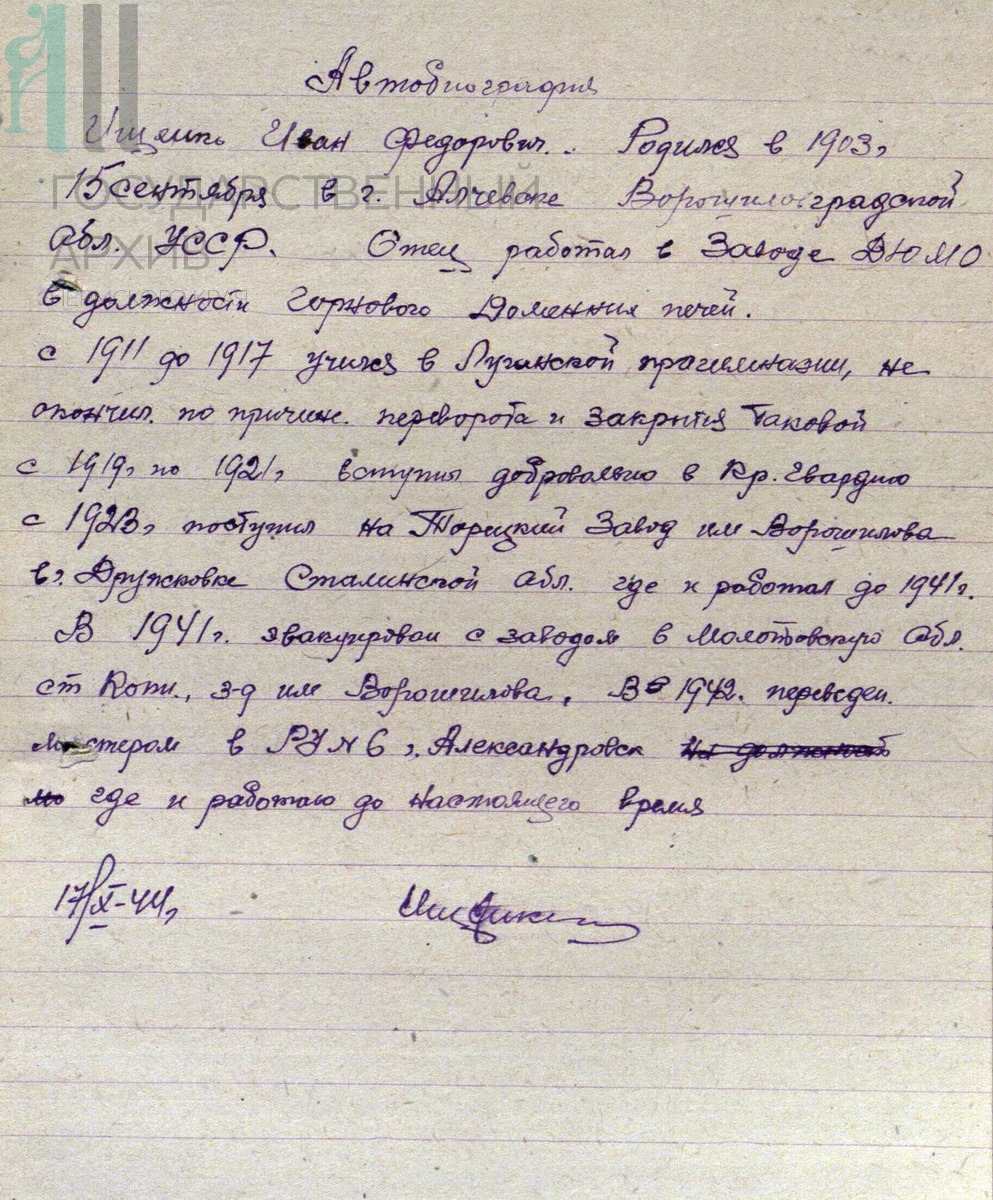 Автобиография
Ищенко Иван Федорович. Родился в 1903г
15 сентября в г. Алчевске Ворошиловградской
обл. УССР. Отец работал в Заводе ДЮМО
в должности Горнового Доменных печей.
с 1911 до 1917 учился в Луганской прогимназии, не
окончил. по причин. переворота и закрытия таковой
с 1919г по 1921г вступил добровольно в Кр. Гвардию
с 1923г поступил на Торецкий Завод им Ворошилова
в г. Дружковке Сталинской обл. где и работал до 1941г.
В 1941г. эвакуирован с заводом в Молотовскую обл.
ст Копи., з-д им Ворошилова. В 1942. переведен.
мастером в РУ№6 г. Александровск на должность
где и работаю до настоящего время
17/X-44г
ГОСУДАРСТВЕННЫЙ
АРХИВ